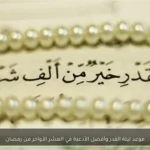 قَدْرِ خَيْرٌ مِّنْ أَلْفِ شَ
موعد ليلة القدر وأفضل الأدعية في العشر الأواخر من رمضان